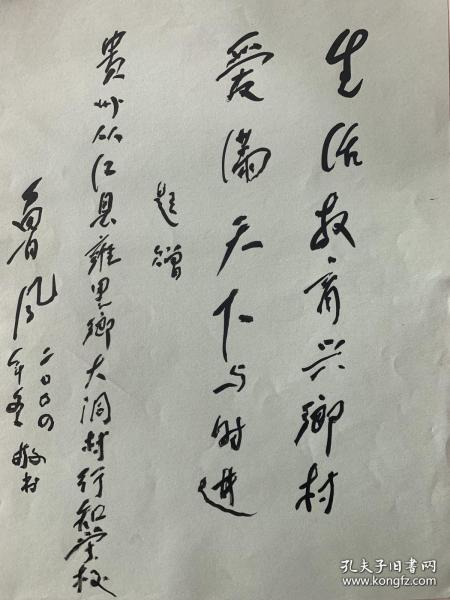 生活教育兴鄉村
爱满天下与时进
题赠
贵州从江县雍里鄉大洞村行知学校
二〇〇四
年冬
孔夫子旧书网
www.kongfz.com